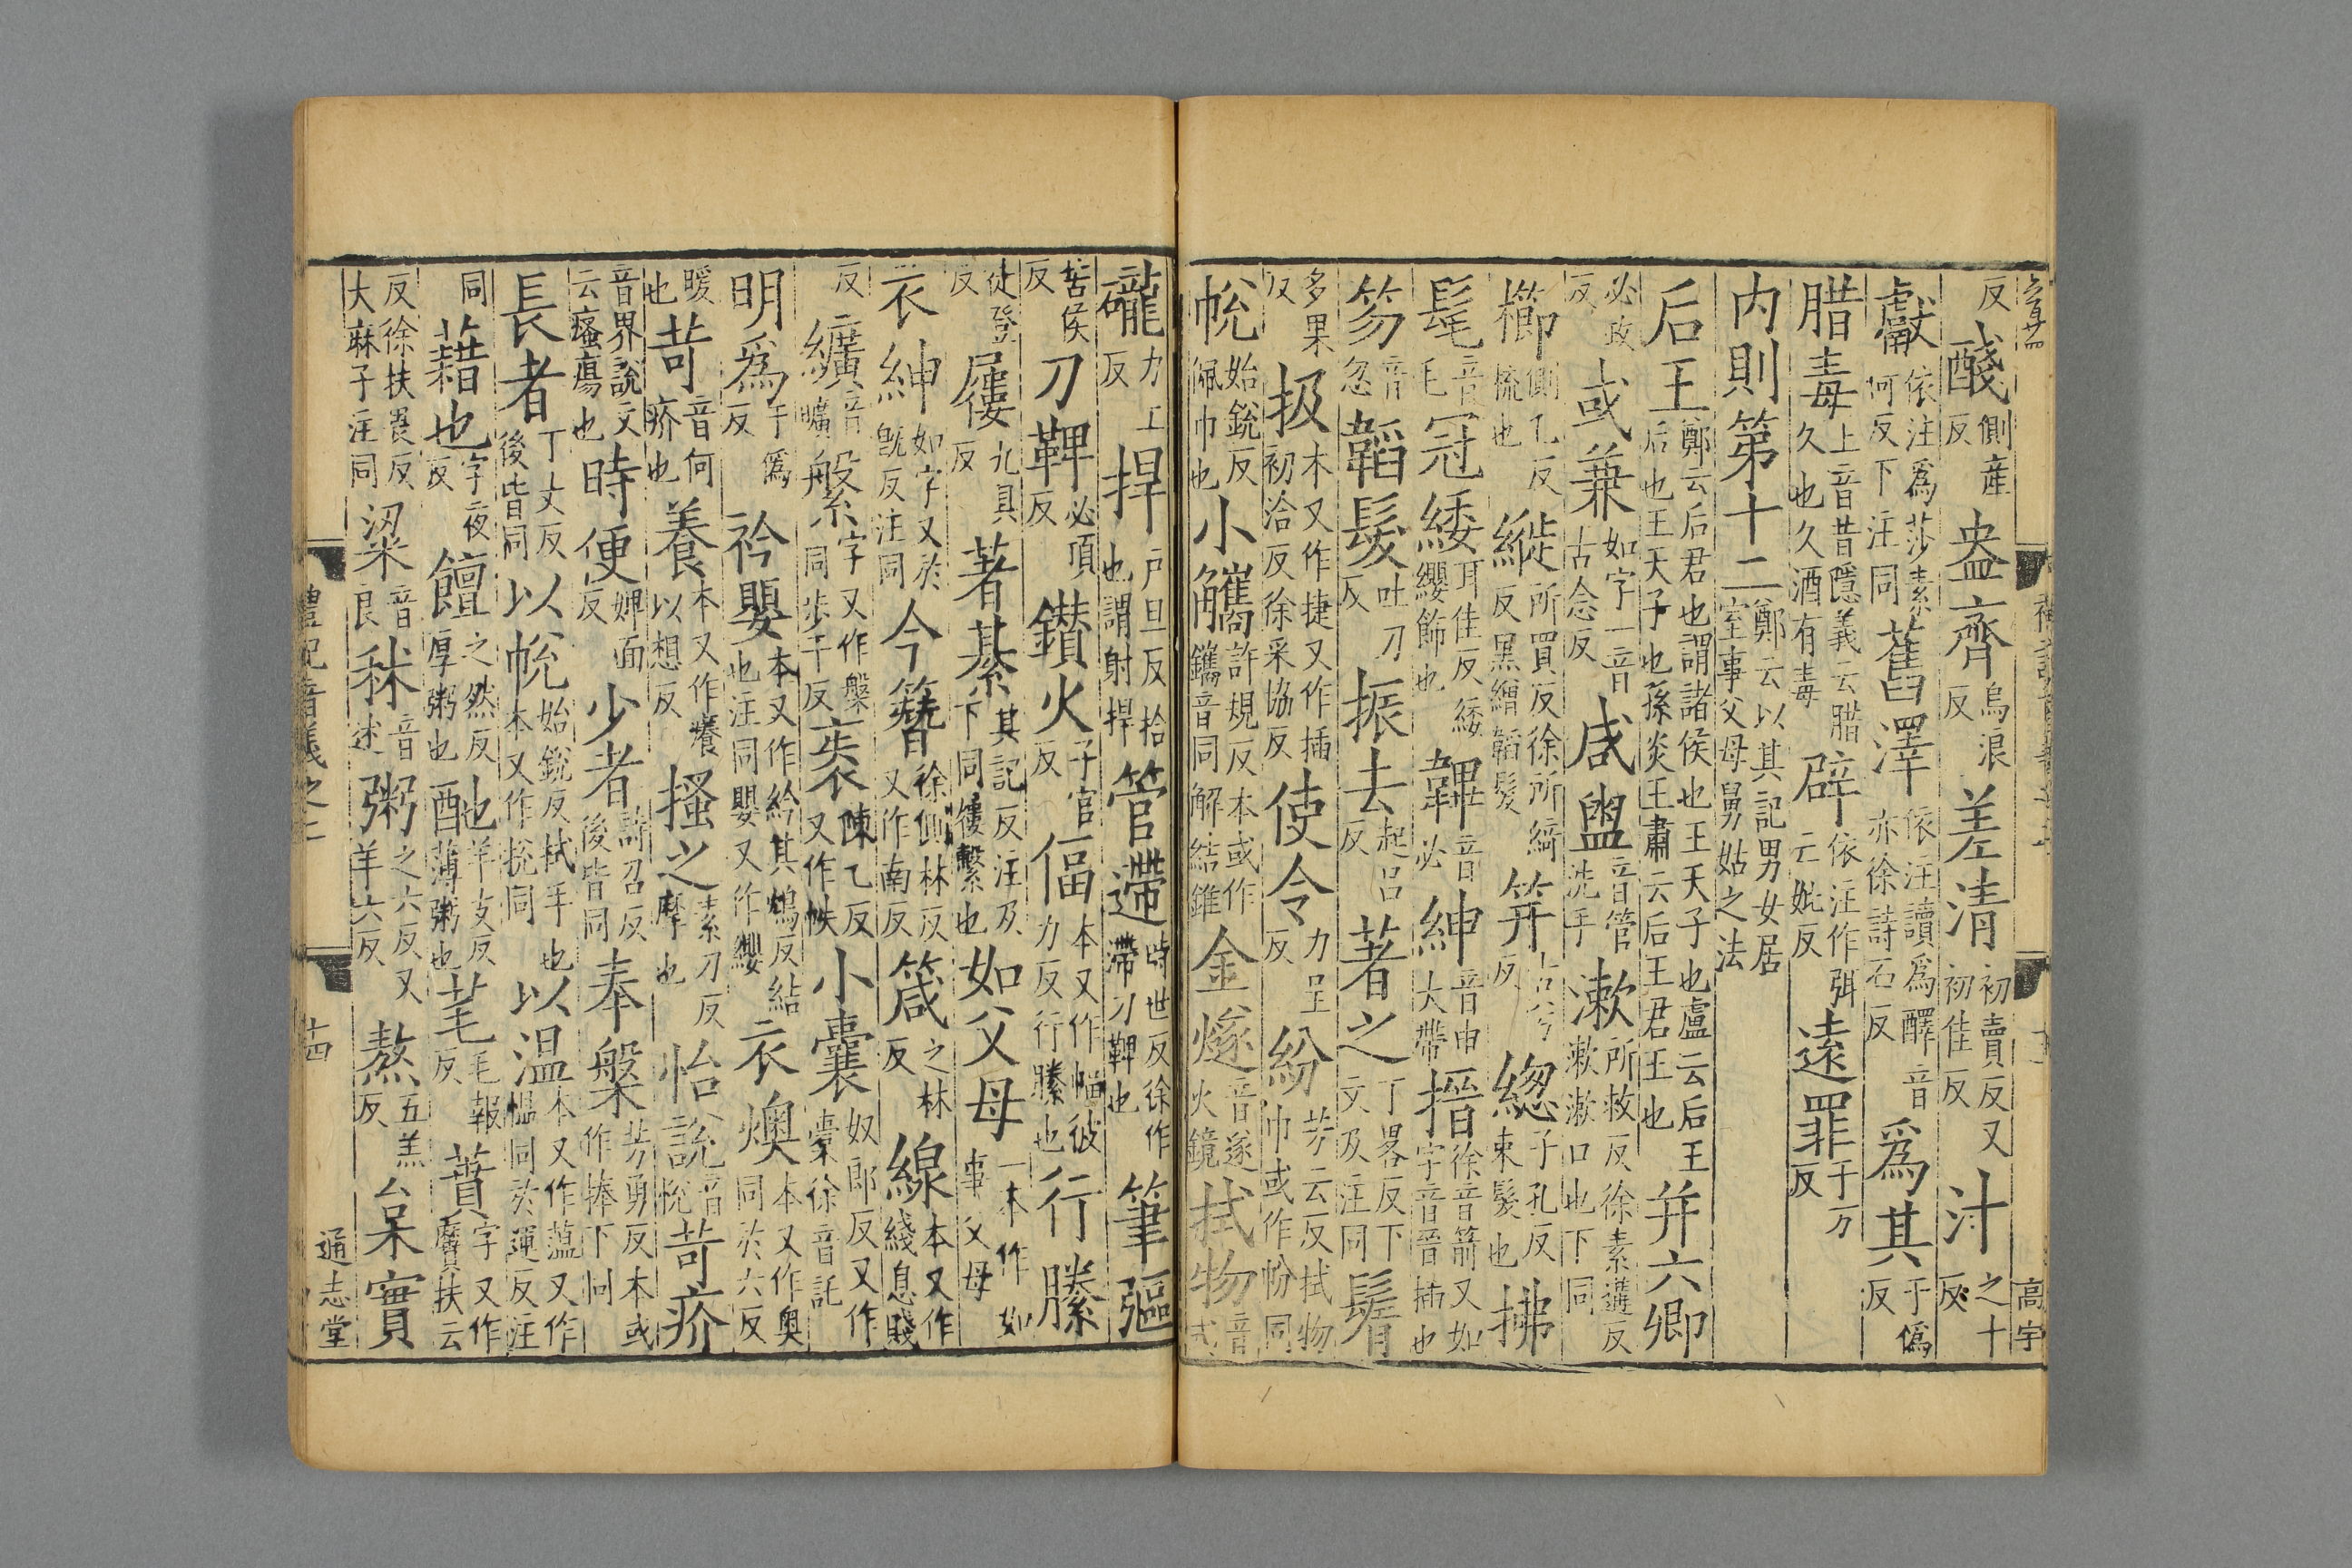 高宇
反醆側產反盎齊烏浪反差清初賣反又初佳反汁之十反
獻依注爲莎素何反下注同舊澤依注讀爲醳音亦徐詩石反爲其于僞反
腊毒上音昔隱義云腊久也久酒有毒辟依注作弭亡妣反遠罪于万反
内則第十二鄭云以其記男女居室事父母舅姑之法
后王鄭云后君也謂諸侯也王天子也盧云后王后也王天子也孫炎王肅云后王君王也并六卿
必政反或兼如字一音古念反咸盥音管洗手漱所救反徐素遘反漱漱口也下同
櫛側乙反梳也縰所買反徐所綺反黑繒韜髮笄古兮反緫子孔反束髮也拂
髦音毛冠緌耳佳反緌纓飾也鞸音必紳音申大帶搢徐音箭又如字音晉插也
笏音忽韜髮吐刀反振去起呂反著之丁畧反下文及注同鬌
多果反扱本又作捷又作插初洽反徐采協反使令力呈反紛芳云反拭物巾或作帉同
帨始銳反佩巾也小觿許規反本或作鑴音同解結錐金燧音遂火鏡拭物音式
礲力工反捍戶旦反拾也謂射捍管遰時世反徐作滯刀鞞也筆彄
苦侯反刀鞞必頂反鑚火子官反偪本又作幅彼力反行縢也行縢
徒登反屨九具反著綦其記反注及下同屨繫也如父母一本作如事父母
衣紳如字又於旣反注同今簪徐側林反又作南反箴之林反線本又作綫息賤
反纊音曠鞶字又作槃同步干反袠陳乙反又作帙小囊奴郎反又作橐徐音託
明爲于僞反衿嬰本又作紟其鴆反結也注同嬰又作纓衣燠本又作奧同於六反
暖也苛音何疥也養本又作癢以想反搔之素刀反摩也怡說音悅苛疥
音界說文云瘙瘍也時便婢面反少者詩召反後皆同奉槃芳勇反本或作捧下同
長者丁丈反後皆同以帨始銳反拭手也本又作挩同以温本又作薀又作愠同於運反注
同藉也字夜反饘之然反厚粥也酏羊支反薄粥也芼毛報反蕡字又作黂扶云
反徐扶畏反大麻子注同粱音良秫音述粥之六反又羊六反熬五羔反枲實
禮記音義之二 十四 通志堂